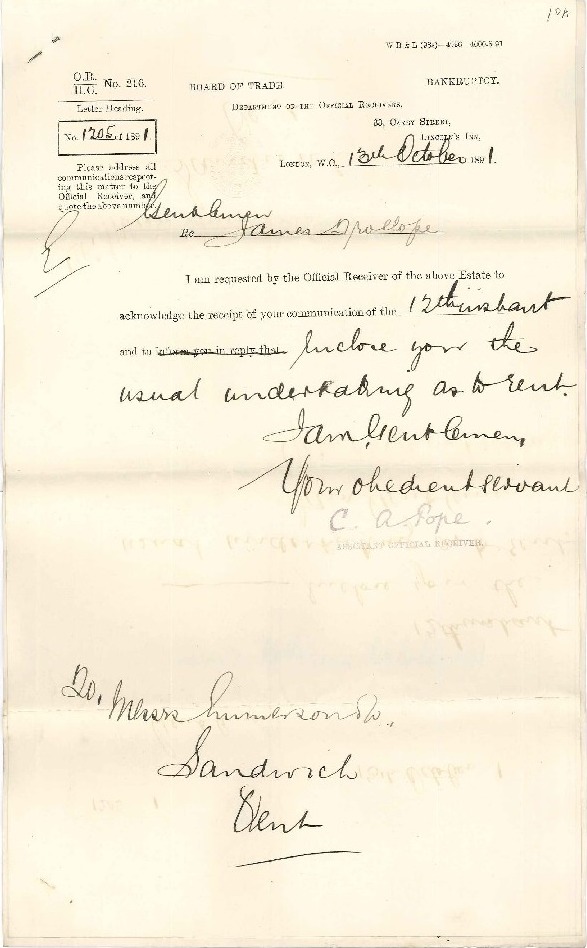 O.R.
H.O. No. 216.
Letter Heading.
No. 1205 of 1891.
Please address all
communications respect-
ing this matter to the
Official Receiver, and
quote the above number.
BOARD OF TRADE
BANKRUPTCY.
DEPARTMENT OF THE OFFICIAL RECEIVERS,
33, CAREY STREET,
LINCOLN'S INN,
LONDON, W.C., 13th October 1891.
Gentlemen
Re James
I am requested by the Official Receiver of the above Estate to
acknowledge the receipt of your communication of the 12th instant
and to inform you in reply that Inclose your the
usual undertaking as to rent.
I am, Gentlemen,
Your obedient servant
C. A. Pope.
ASSISTANT OFFICIAL RECEIVER.
To, Messrs Emmerson & Co.,
Sandwich
Kent